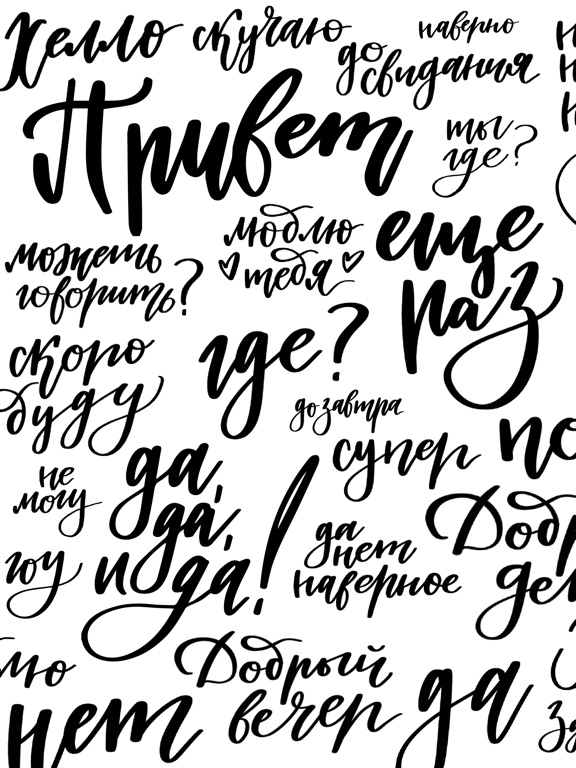 Хелло
скучаю
наверно
до
свидания
Привет
ты
где?
можешь
говорить?
люблю
тебя
еще
раз
скоро
буду
где?
до завтра
супер
по
не
могу
да,
да,
и да!
гоу
да
нет
наверное
Добр
ден
Добрый
вечер
нет
да